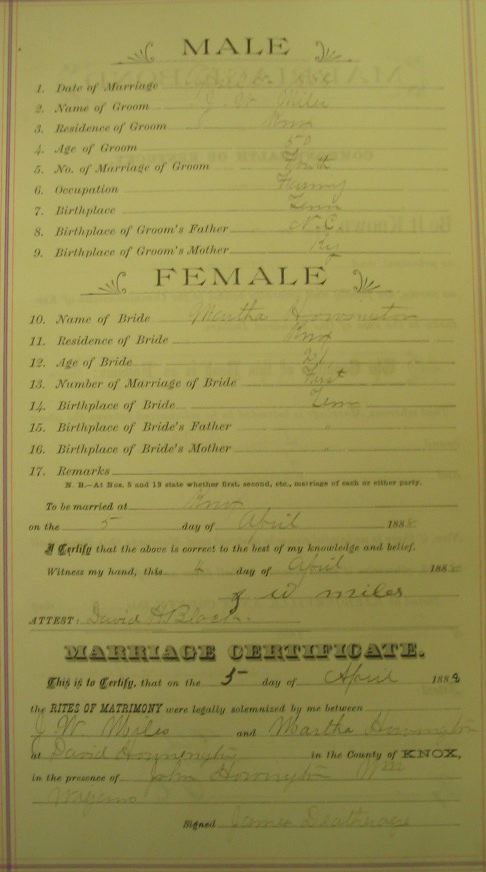 MALE
1. Date of Marriage
2. Name of Groom J. W. Miles
3. Residence of Groom Knox
4. Age of Groom 50
5. No. of Marriage of Groom
6. Occupation Farming
7. Birthplace Tenn
8. Birthplace of Groom's Father N. C.
9. Birthplace of Groom's Mother Ky
FEMALE
10. Name of Bride Martha
11. Residence of Bride Knox
12. Age of Bride 21
13. Number of Marriage of Bride First
14. Birthplace of Bride Tenn
15. Birthplace of Bride's Father "
16. Birthplace of Bride's Mother "
17. Remarks
N. B.—At Nos. 5 and 13 state whether first, second, etc., marriage of each or either party.
To be married at Knox
on the 5 day of April 1888
I Certify that the above is correct to the best of my knowledge and belief.
Witness my hand, this 4 day of April 1888
J W miles
ATTEST: David R. Black.
MARRIAGE CERTIFICATE.
This is to Certify, that on the 5 day of April 1888
the RITES OF MATRIMONY were legally solemnized by me between
J W Miles and Martha
at David in the County of KNOX,
in the presence of John
Signed James Deatherage